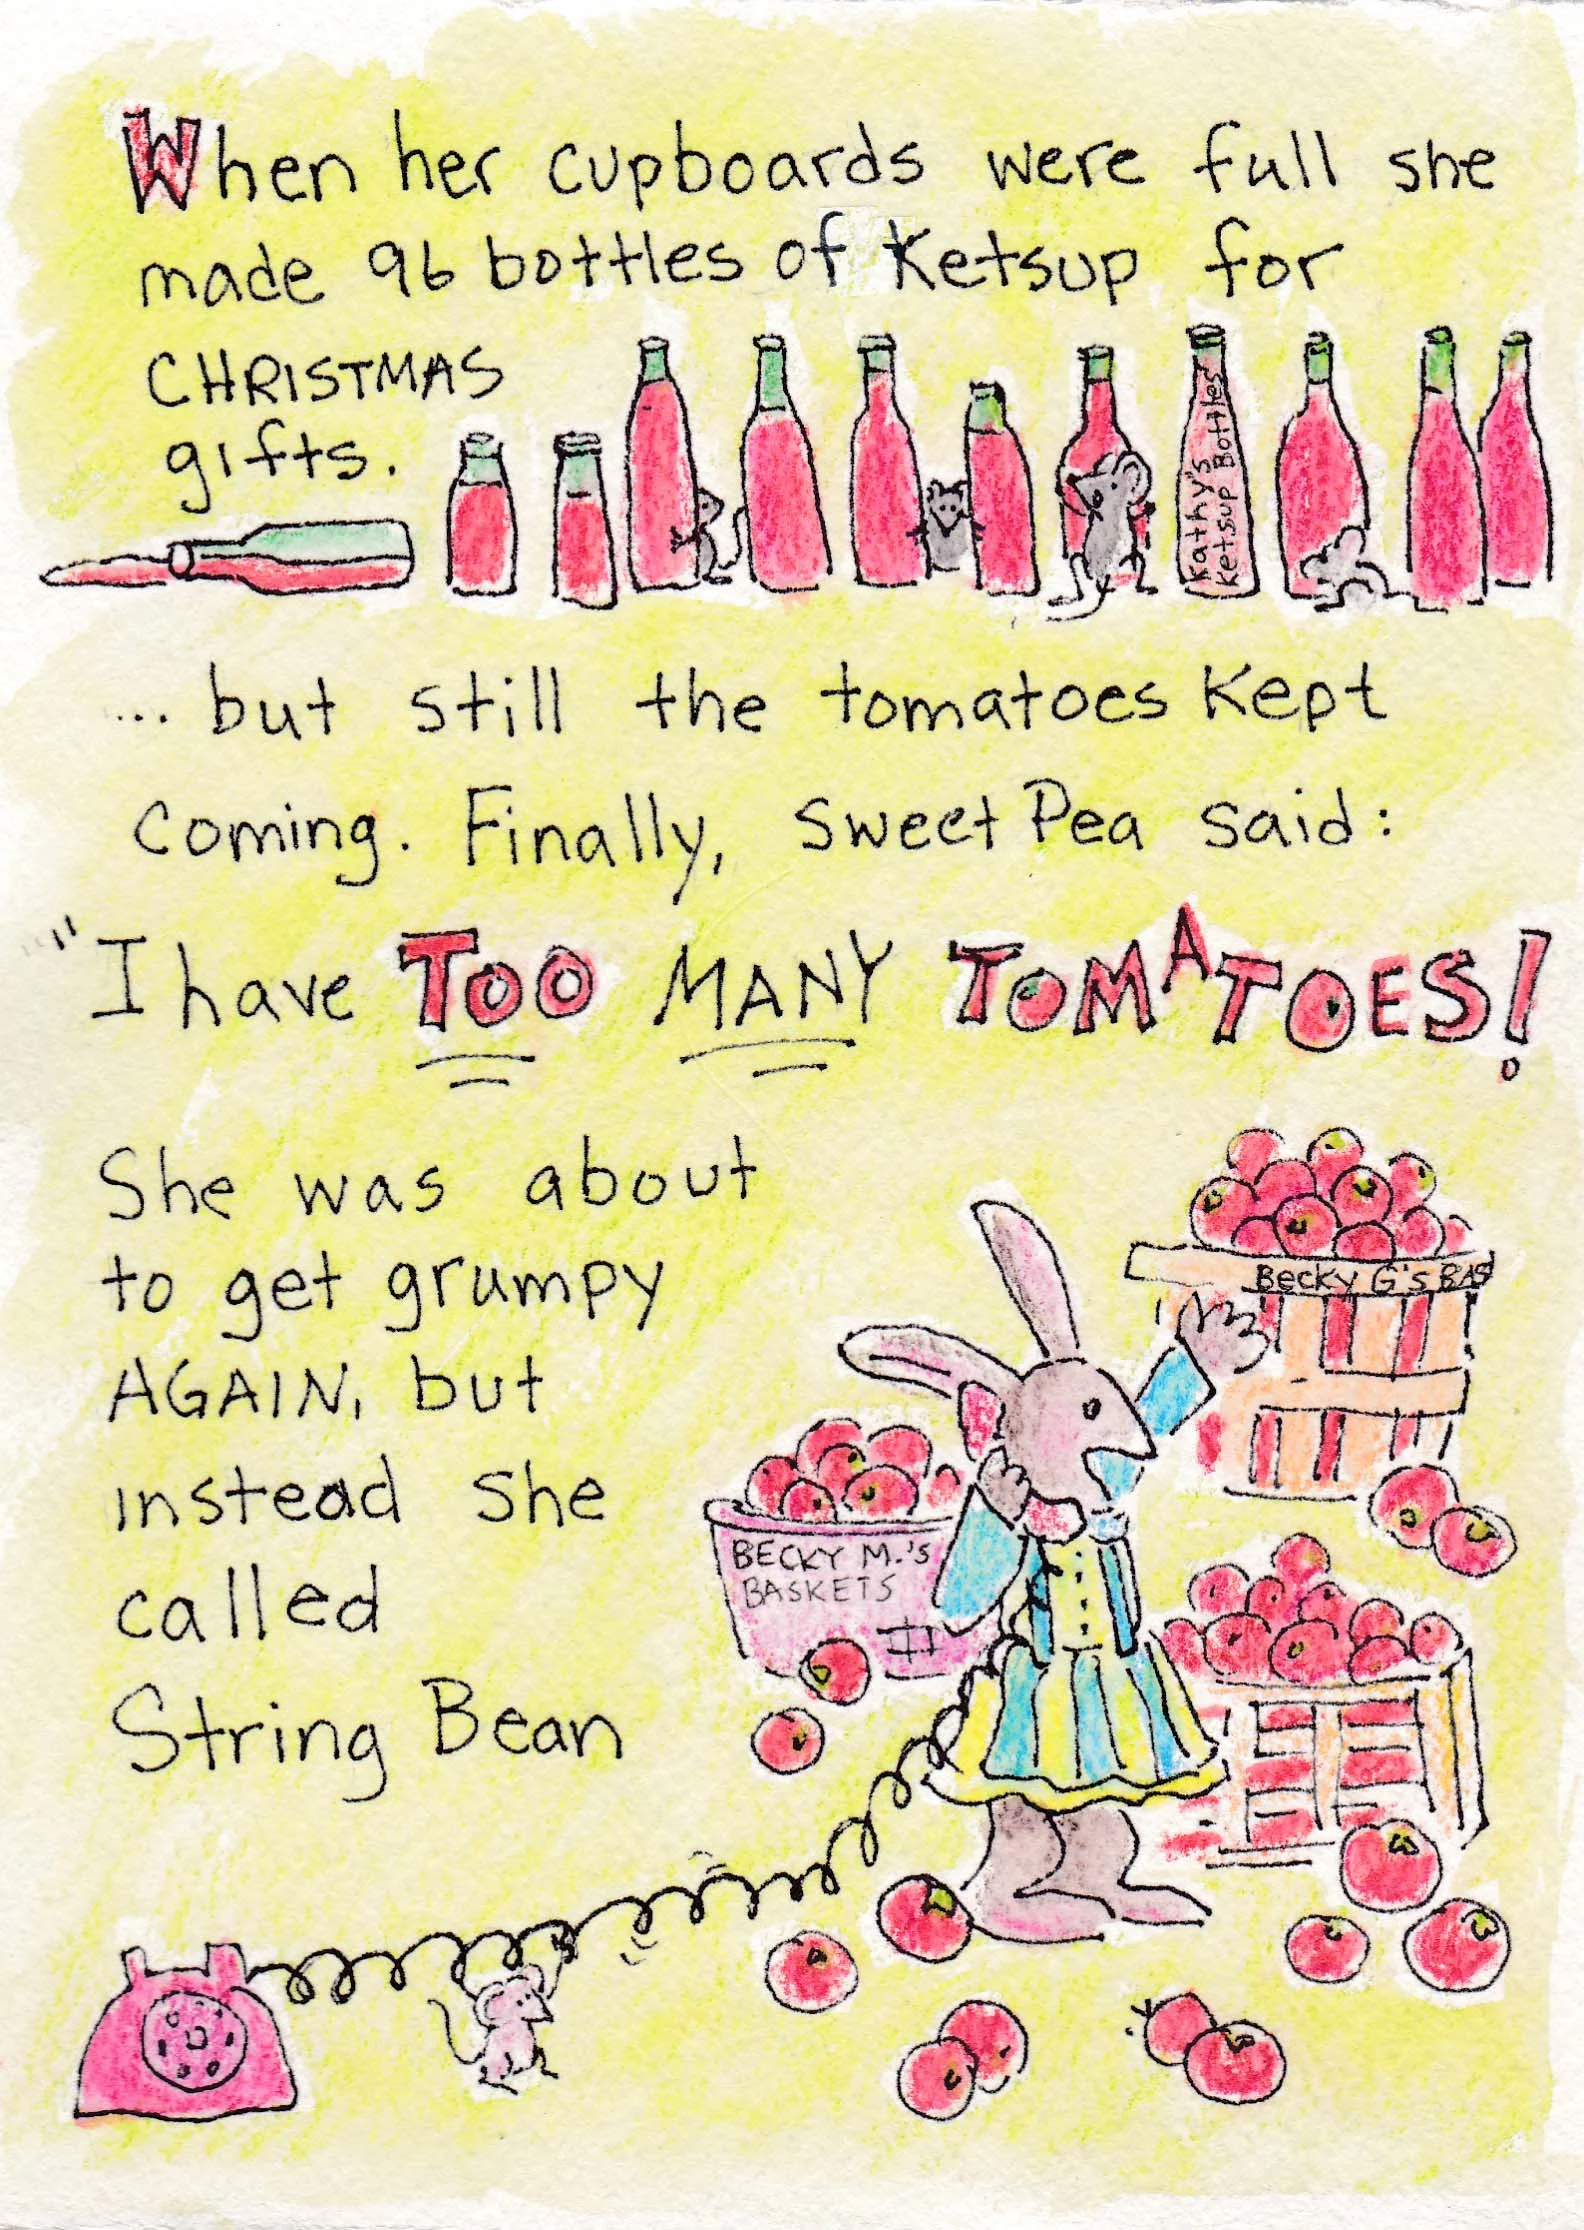 When her cupboards were full she
made 96 bottles of Ketsup for
CHRISTMAS
gifts.
Kathy's
Ketsup Bottles
... but still the tomatoes Kept
coming. Finally, Sweet Pea said:
"I have TOO MANY TOMATOES!
She was about
to get grumpy
AGAIN, but
instead she
called
String Bean
Becky G's BAS
BECKY M.'s
BASKETS